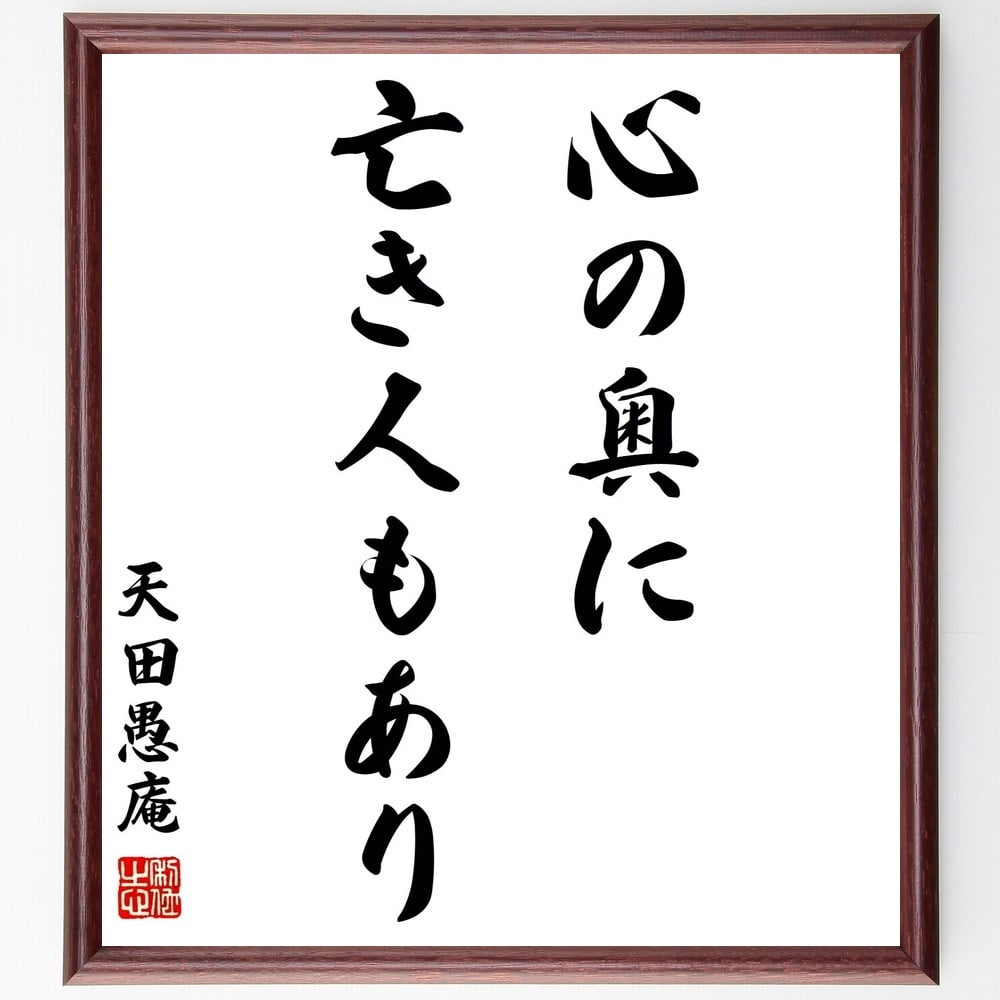 心の奥に
亡き人もあり
天田愚庵